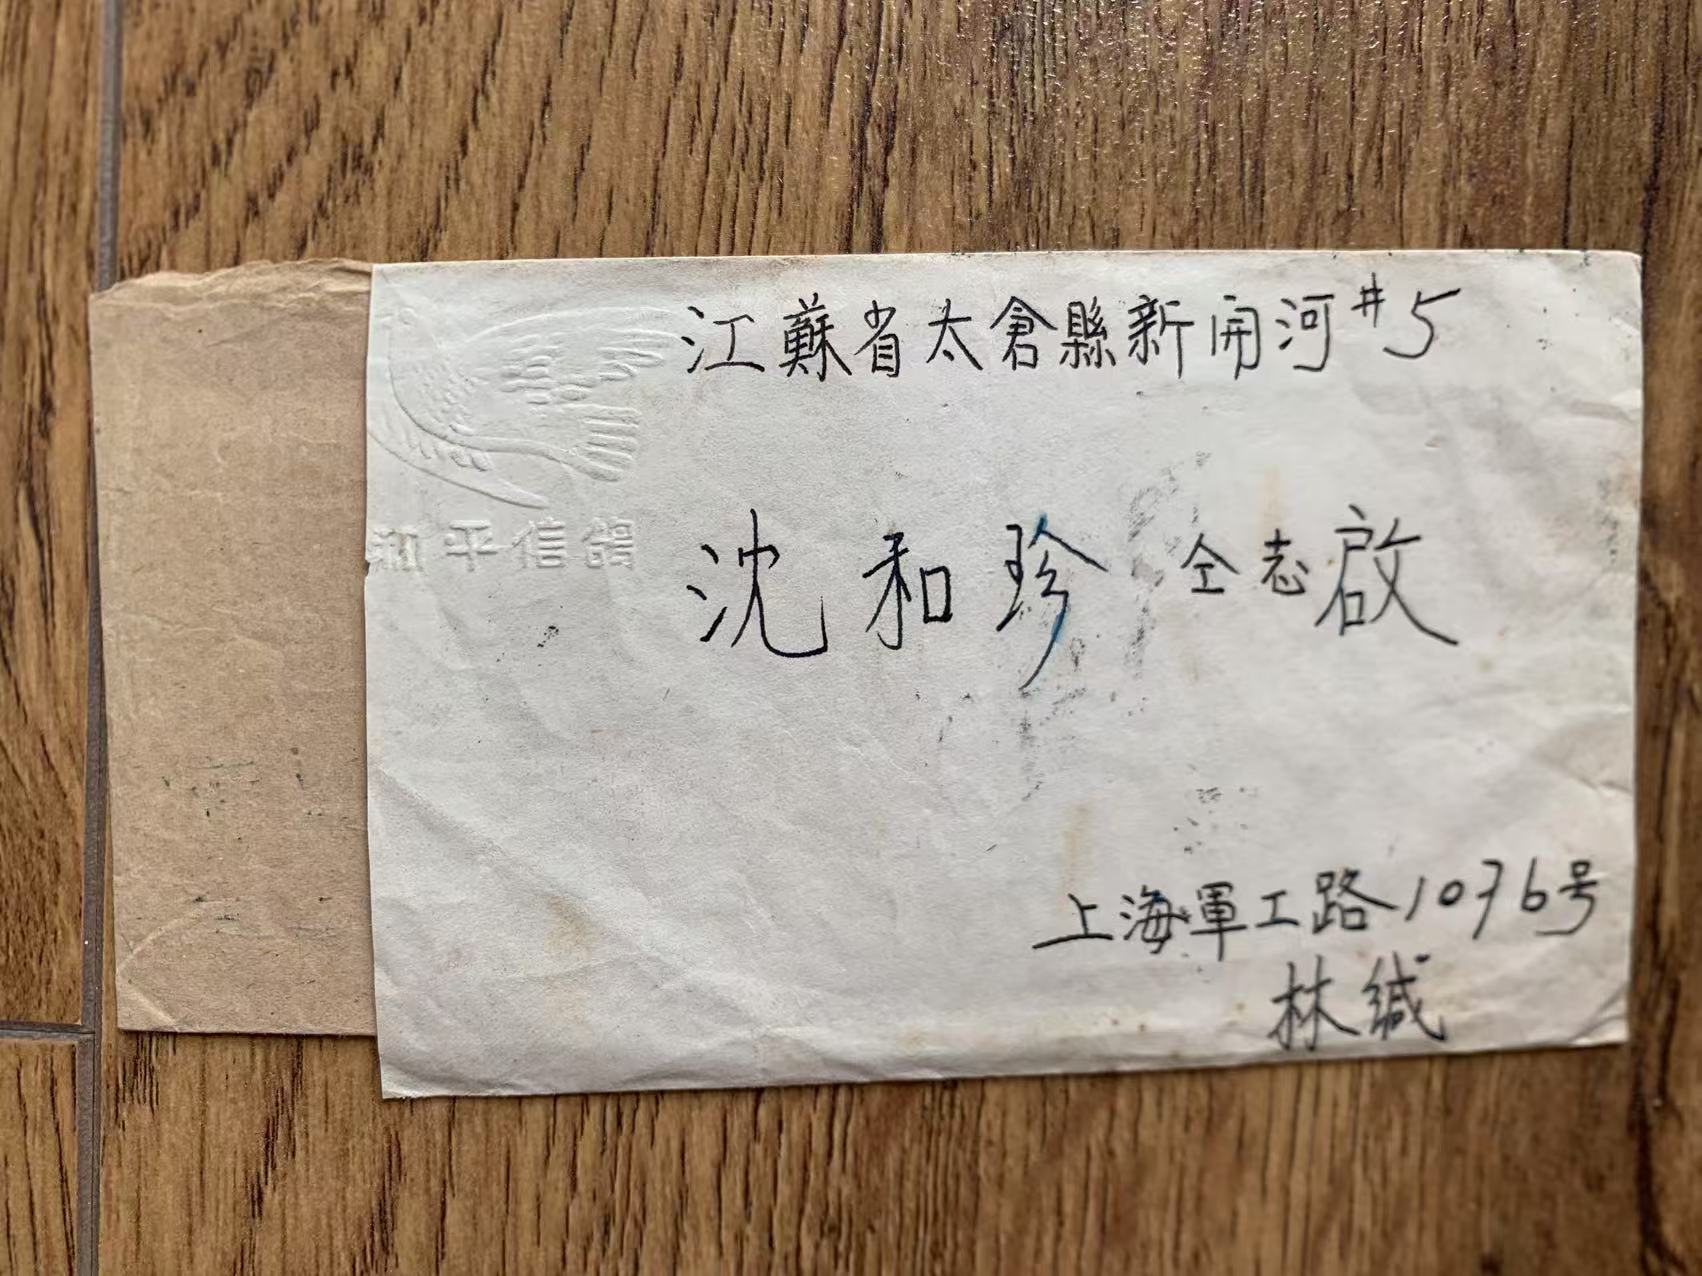 江蘇省太倉縣新開河#5
和平信鴿
沈和珍 仝志啟
上海軍工路1076号
林缄